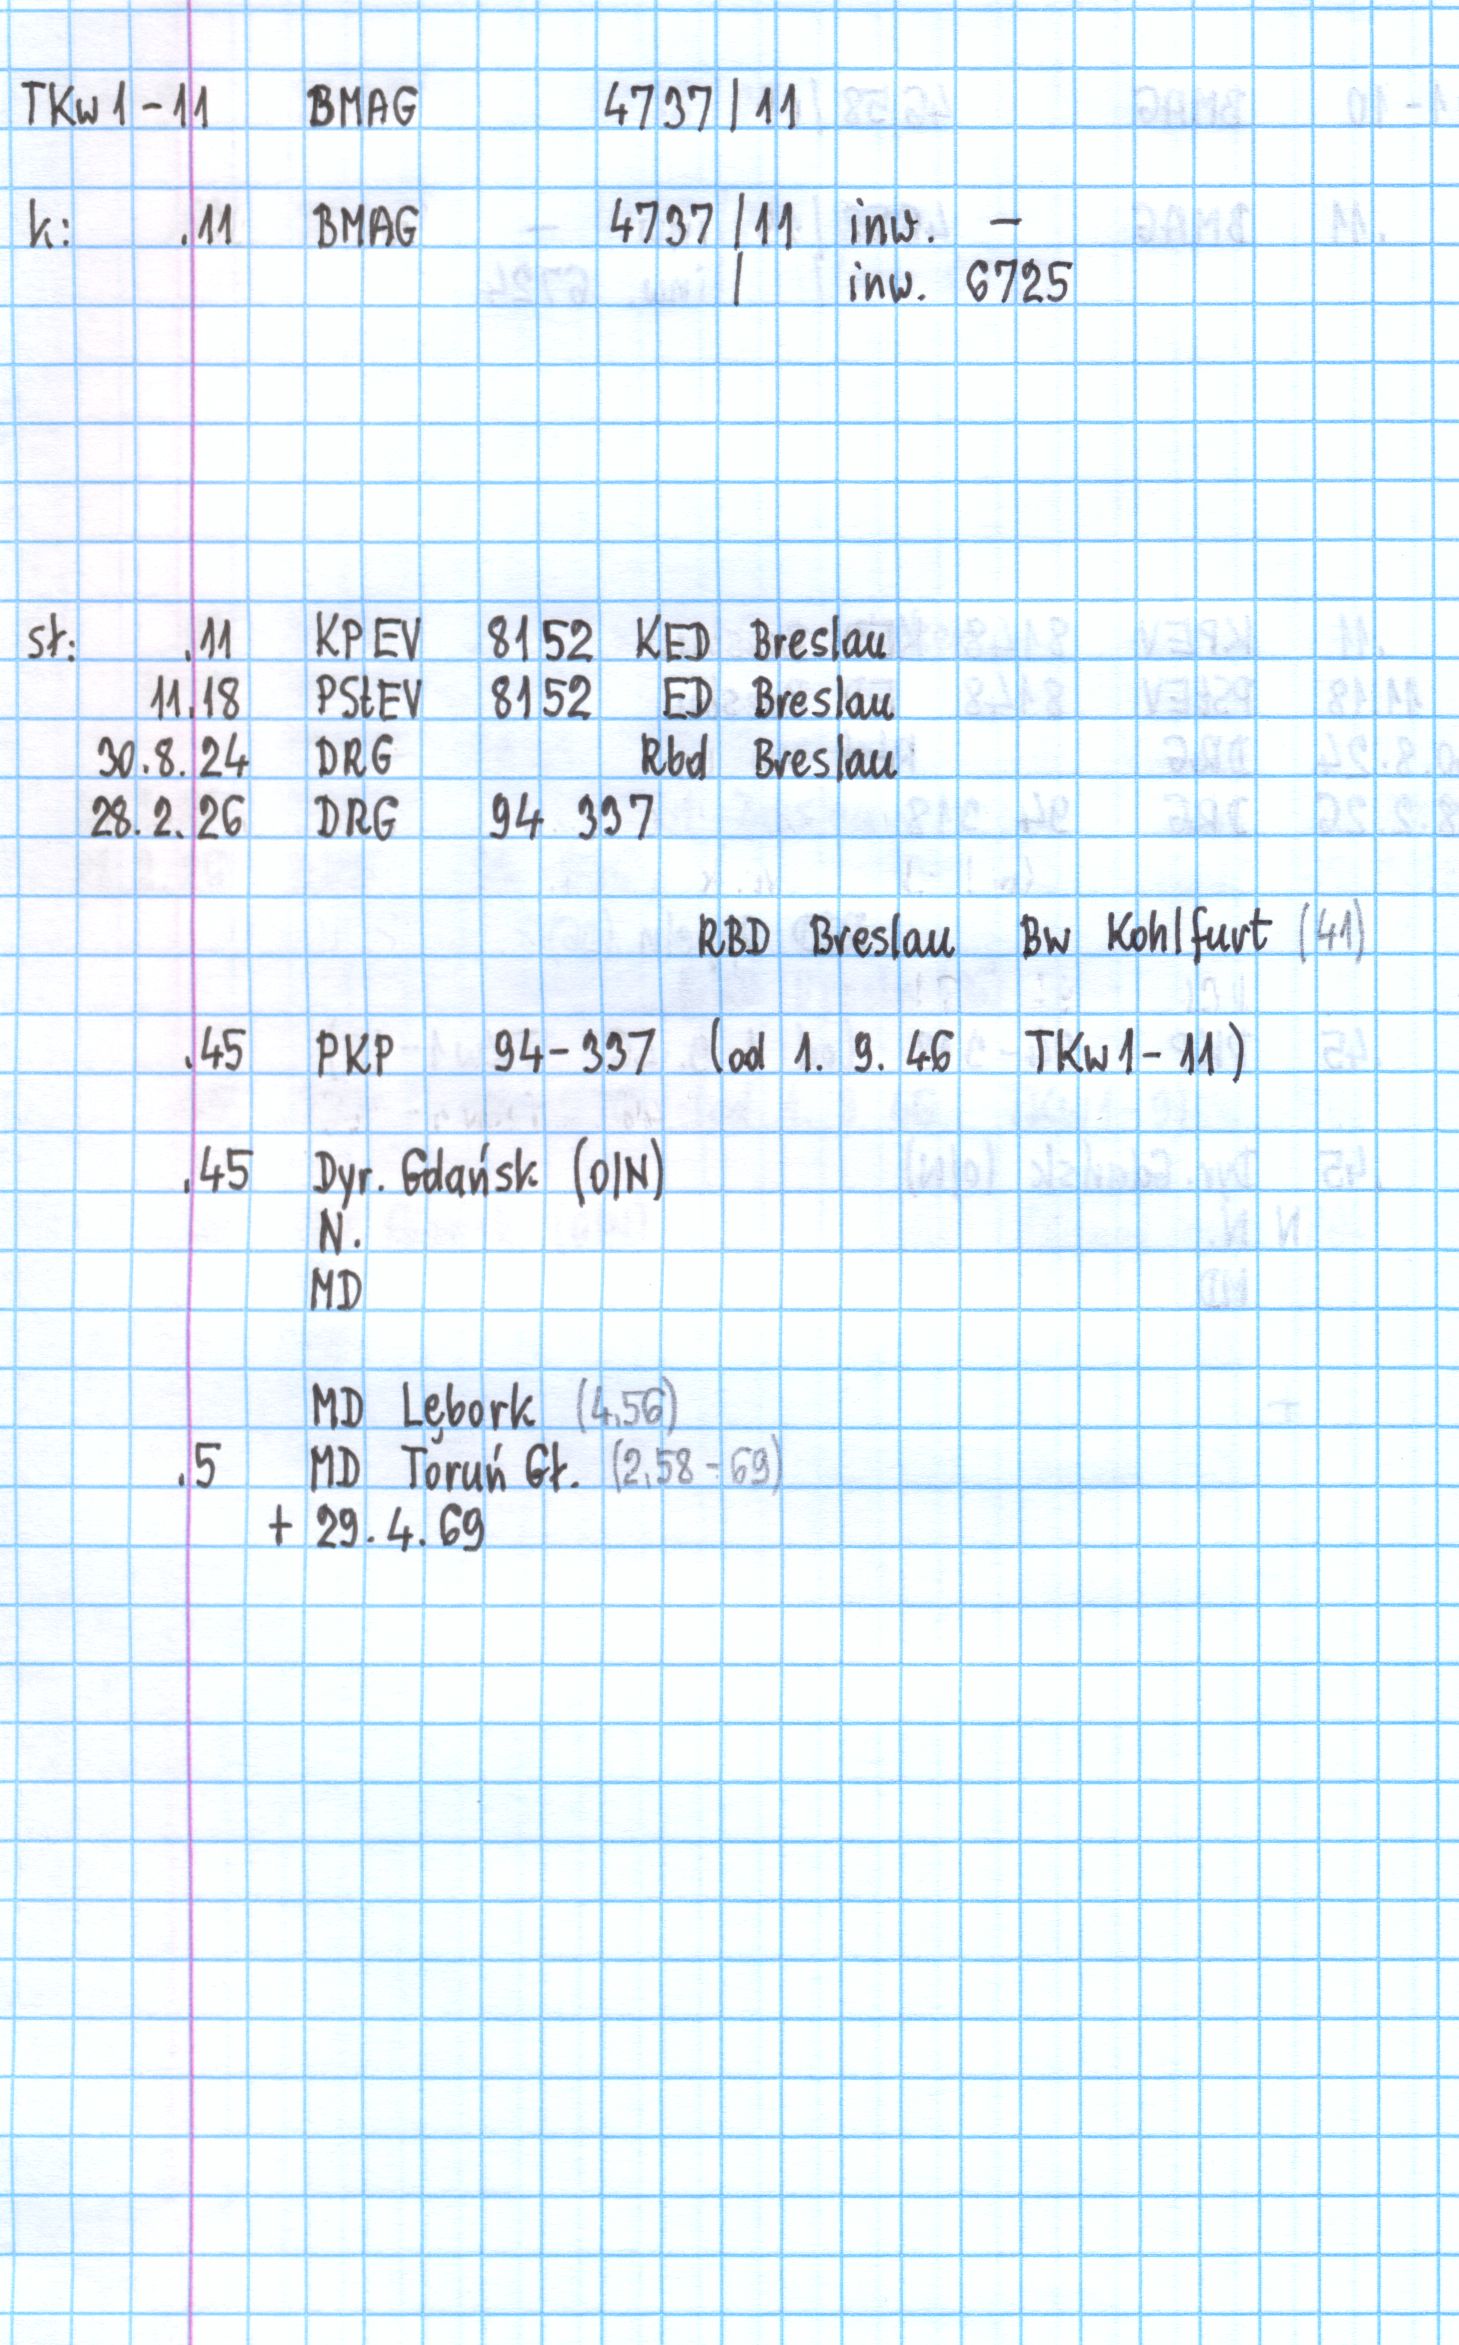 TKw1-11 BMAG 4737/11
k: .11 BMAG 4737/11 inw. -
/ inw. 6725
st: .11 KPEV 8152 KED Breslau
11.18 PStEV 8152 ED Breslau
30.8.24 DRG Rbd Breslau
28.2.26 DRG 94 337
RBD Breslau Bw Kohlfurt (41)
.45 PKP 94-337 (od 1.9.46 TKw1-11)
.45 Dyr. Gdańsk (O/N)
N.
MD
MD Lębork (4,56)
.5 MD Toruń Gł. (2,58-69)
+ 29.4.69